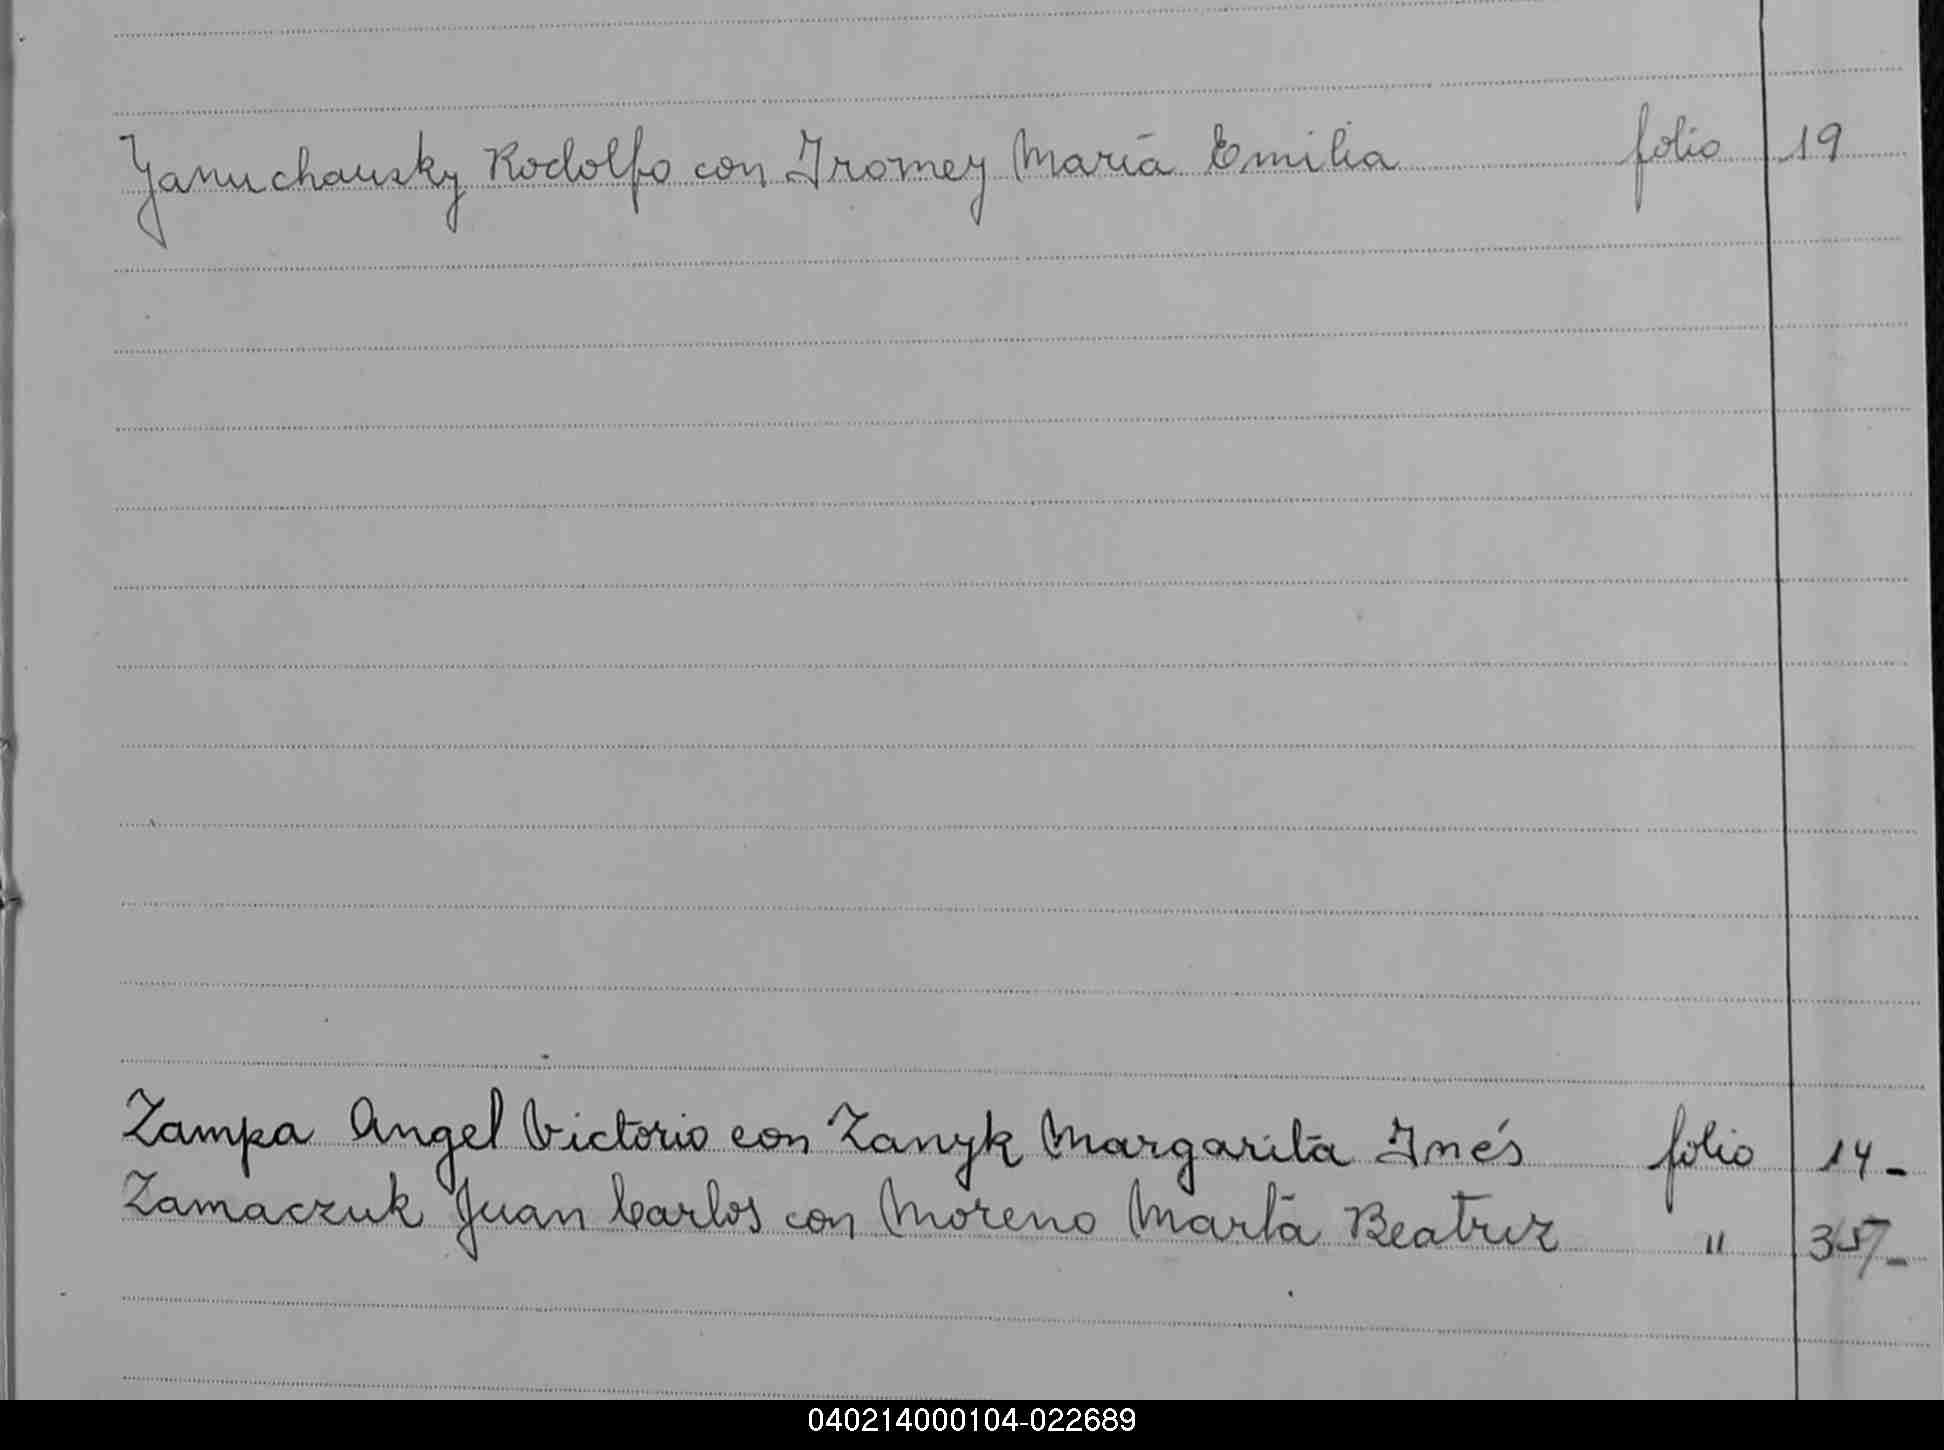 Yanuchausky Rodolfo con Iromey María Emilia folio 19
Zampa Angel Victorio con Zanyk Margarita Inés folio 14-
Zamaczuk Juan Carlos con Moreno Marta Beatriz "
040214000104-022689